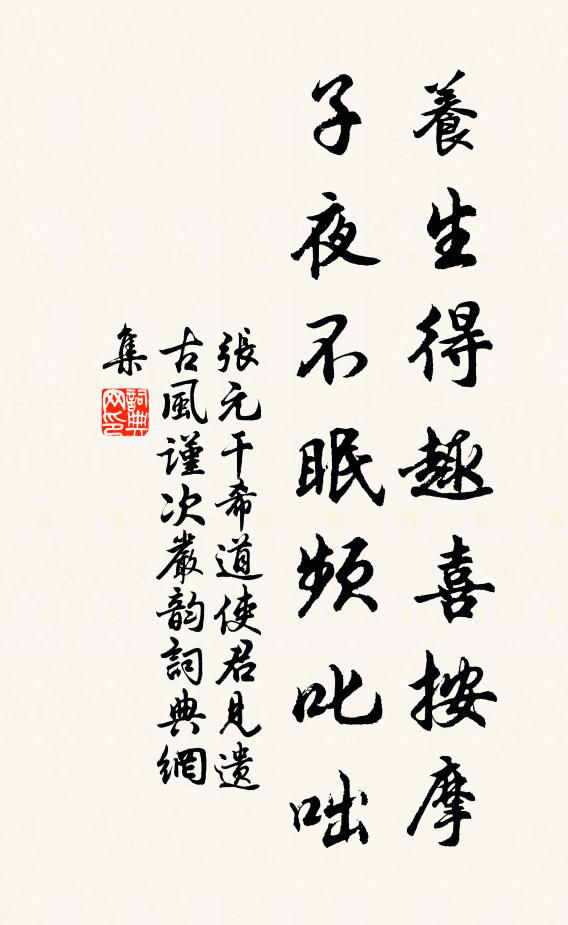 養生得趣喜按摩
子夜不眠頻叱咄
張元干希道使君見遺
古風謹次嚴韵詞典網
集
詞典
网印